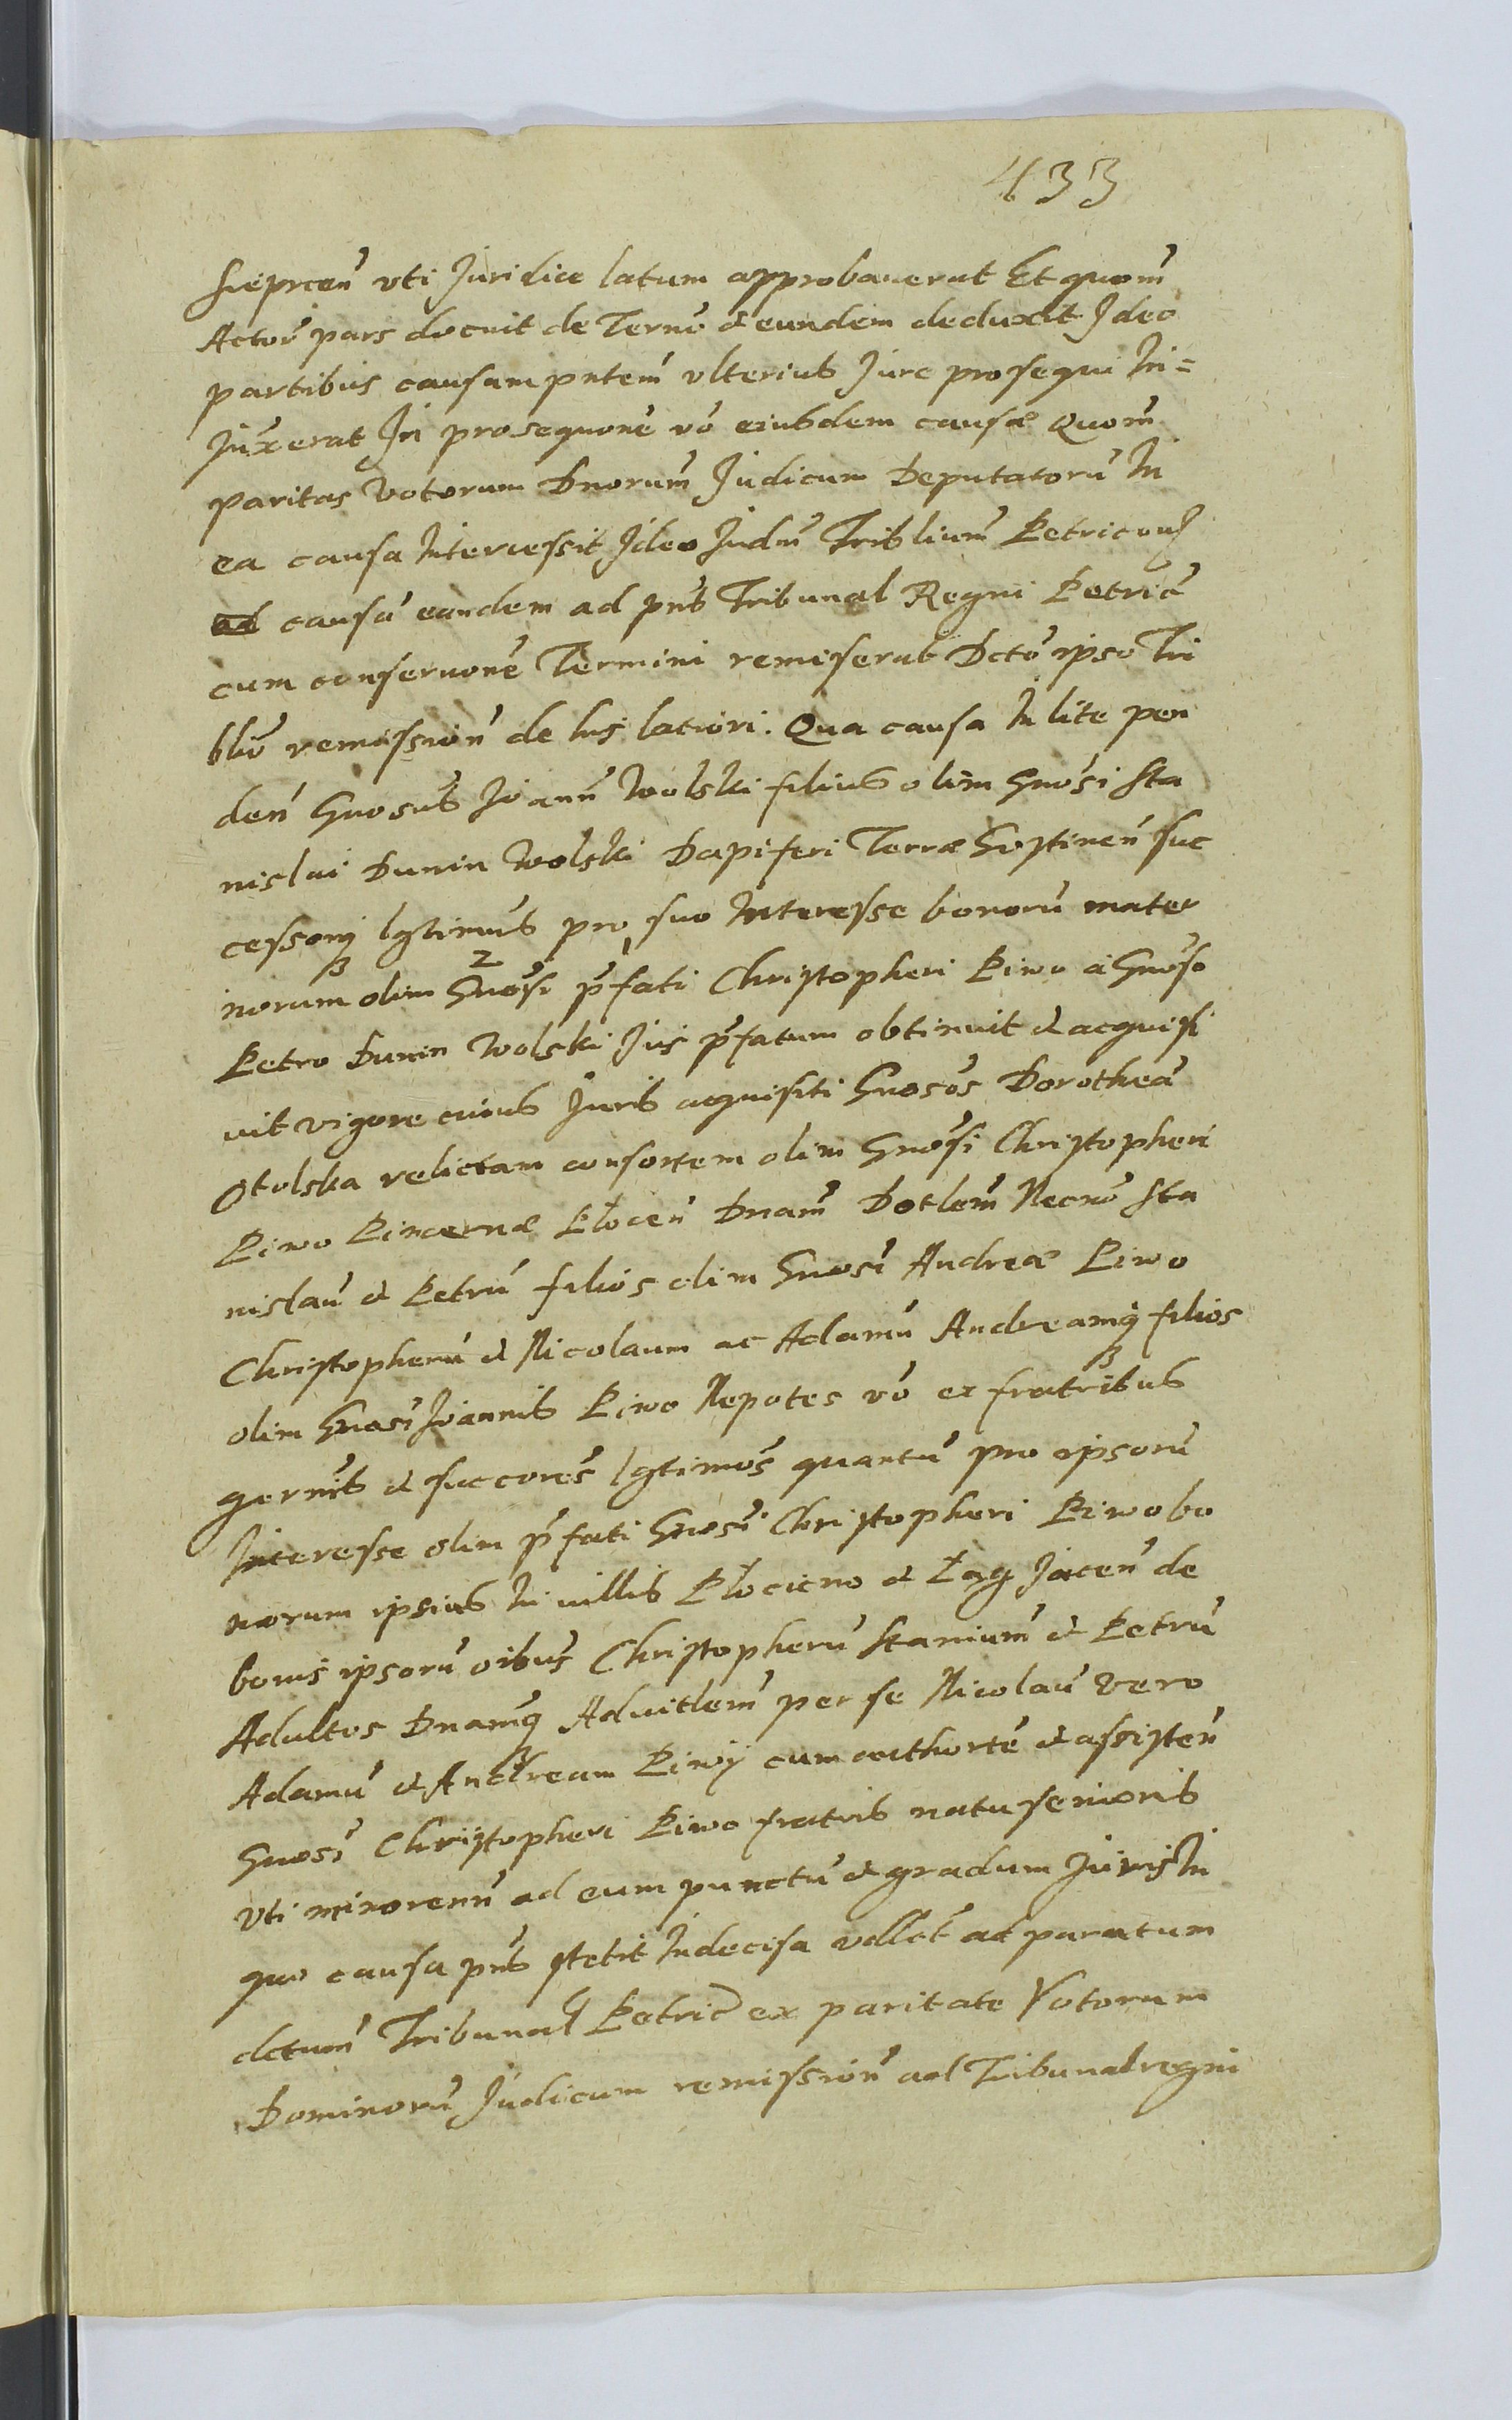 433
Sieprcen̄ vti Juridice latum approbauerat Et quom̄
Actor̄ pars docuit de Termō & eundem deduxit Ideo
partibus causam pntem̄ vlterius Jure prosequi In=
Junxerat In prosequone vō eiusdem causæ Quom̄
paritas Votorum Dnorum̄ Judicum Deputatorū In
ea causa Intercessit Ideo Judm̄ Triblium̄ Petricon̄
causā eandem ad pns̄ Tribunal Regni Petric̄
cum conseruone Termini remiserat Dctō ipso Tri
bliō remission̄ de his latiori. Qua causa In lite pen
den̄ Gnosūs Joann̄ Wolski filius olim Gnōsi Sta
nislai Dunin Wolski Dapiferi Terræ Gostinen̄ suc
cessorq̨ lgtimus pro suo Interesse bonorū mater
norum olim Gnōsi p̄fati Christopheri Piwo a Gnōso
Petro Dunin Wolski Jus p̄fatum obtinuit & acquisi
uit vigore cuius Juris acquisiti Gnosōs Dorotheā
Otolska relictam consortem olim Gnōsi Christopheri
Piwo Pincernæ Płocen̄ Dnam̄ Dotlem̄ Necnō Sta
nislaū & Petrū filios olim Gnosī Andreæ Piwo
Christopherū & Nicolaum ac Adamū Andreamq̨ filios
olim Gnosī Joannis Piwo Nepotes vō ex fratribus
germīs & succores̄ lgtimōs quantū pro ipsorū
Interesse olim p̄fati Gnosī Christopheri Piwo bo
norum ipsius In uillis Płocicno & Łąg Jacen̄ de
bonis ipsorū oibus̄ Christopherū Stanium̄ & Petrū
Adultos Dnamq̨ Aduitlem̄ per se Nicolaū vero
Adamū & Andream Piwÿ cum authorte & assisten̄
Gnosī Christopheri Piwo fratris natu senioris
vti minorenn̄ ad eum punctū & gradum Juris In
quo causa pns̄ stetit Indecisa vellet ad paratum
dctum̄ Tribunal Petric̄ ex paritate Votorum
Dominorū Judicum remission̄ ad Tribunal regni